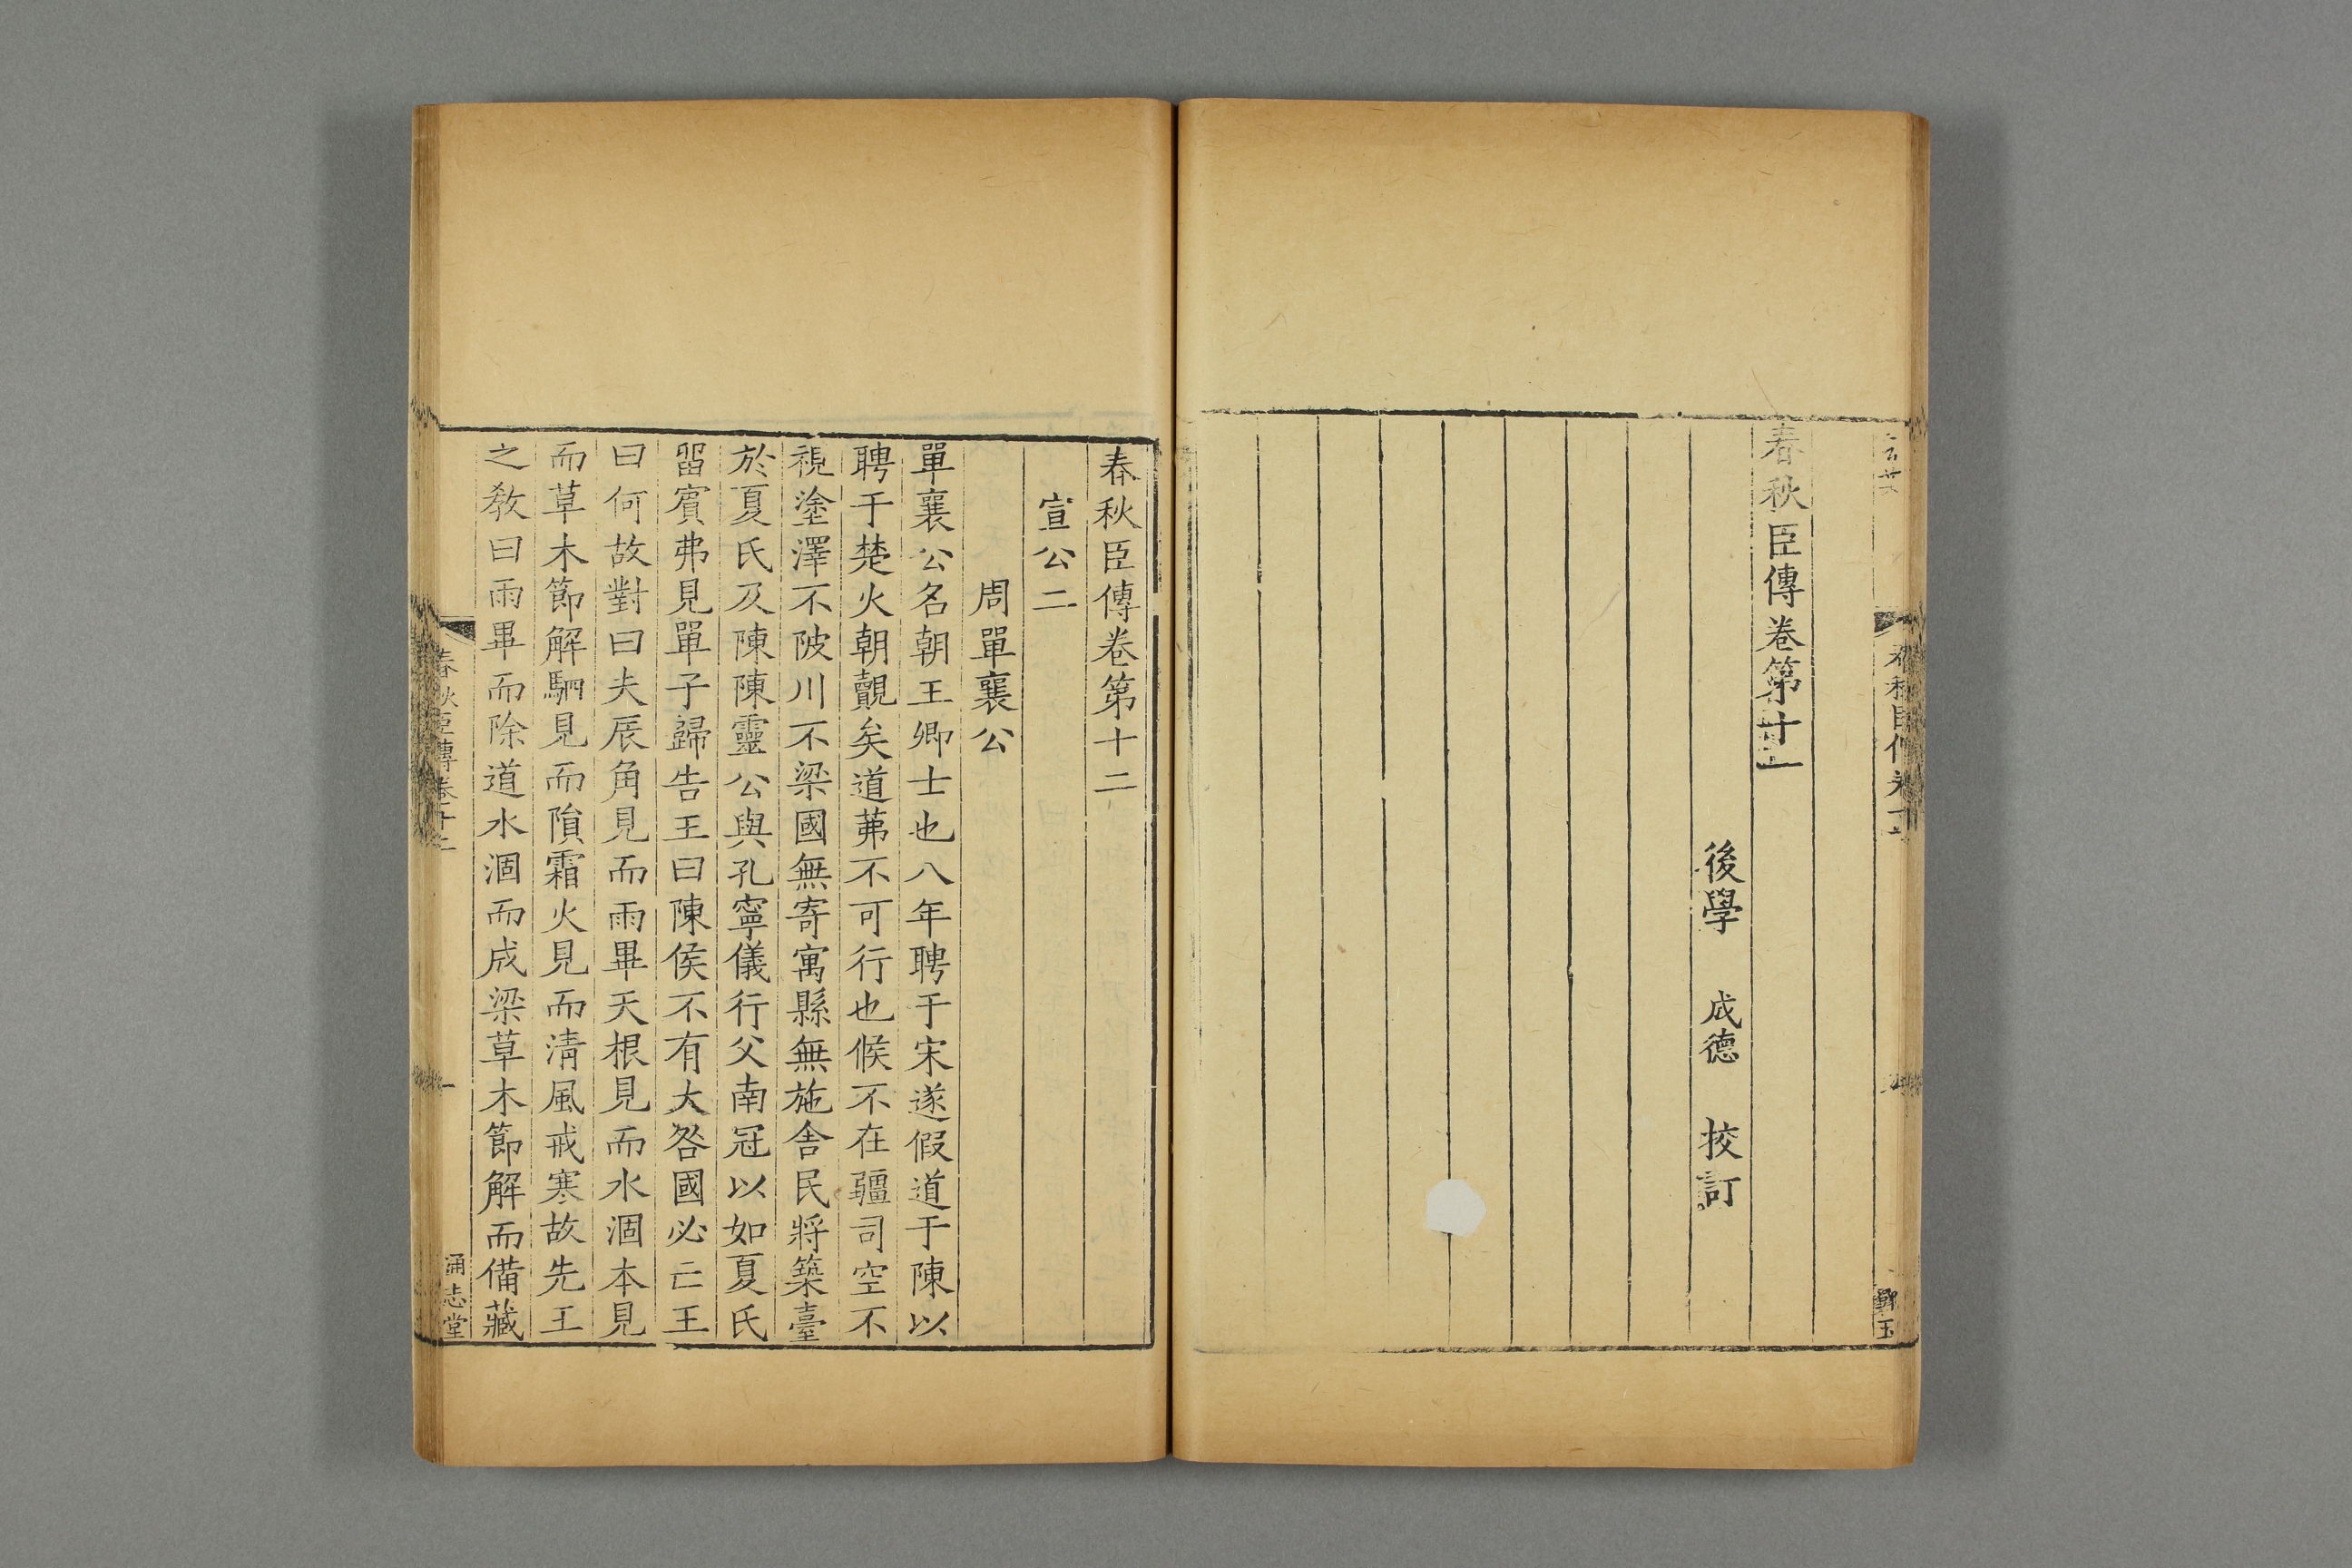 春秋臣傳卷第十一
後學　成德　挍訂
春秋臣傳卷第十二
宣公二
周單襄公
單襄公名朝王卿士也八年聘于宋遂假道于陳以
聘于楚火朝覿矣道茀不可行也候不在疆司空不
視塗澤不陂川不梁國無寄寓縣無施舍民將築臺
於夏氏及陳陳靈公與孔寧儀行父南冠以如夏氏
留賓弗見單子歸告王曰陳侯不有大咎國必亡王
曰何故對曰夫辰角見而雨畢天根見而水涸本見
而草木節解駟見而隕霜火見而清風戒寒故先王
之敎曰雨畢而除道水涸而成梁草木節解而備藏
春秋臣傳卷十二
一
通志堂